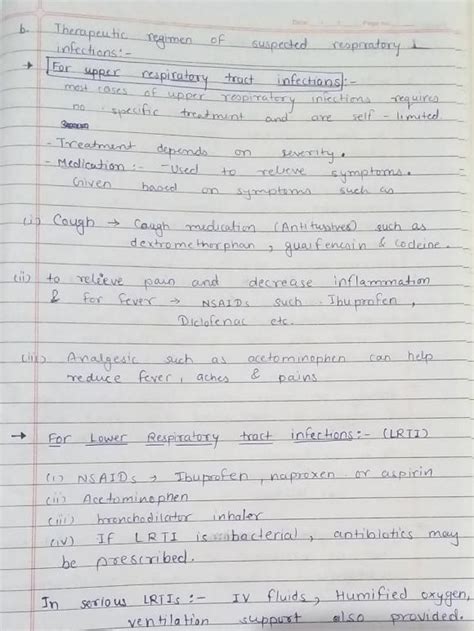 Date Page No.
b. Therapeutic regimen of suspected respiratory
infections:-
→ For upper respiratory tract infections:-
most cases of upper respiratory infections requires
no specific treatment and are self-limited
- Treatment depends on severity.
- Medication:- -Used to relieve symptoms.
Given based on symptoms such as
(i) Cough → Cough medication (Antitussives) such as
dextromethorphan, guaifencsin & codeine.
(ii) to relieve pain and decrease inflammation
& for fever → NSAIDs such Ibuprofen,
Diclofenac etc.
(iii) Analgesic such as acetominophen can help
reduce fever, aches & pains
→ For Lower Respiratory tract infections:- (LRTI)
(i) NSAIDs → Ibuprofen, naproxen or aspirin
(ii) Acetominophen
(iii) bronchodilator inhaler
(iv) If LRTI is bacterial, antibiotics may
be prescribed.
In serious LRTIs:- IV fluids, Humified oxygen,
ventilation support also provided.